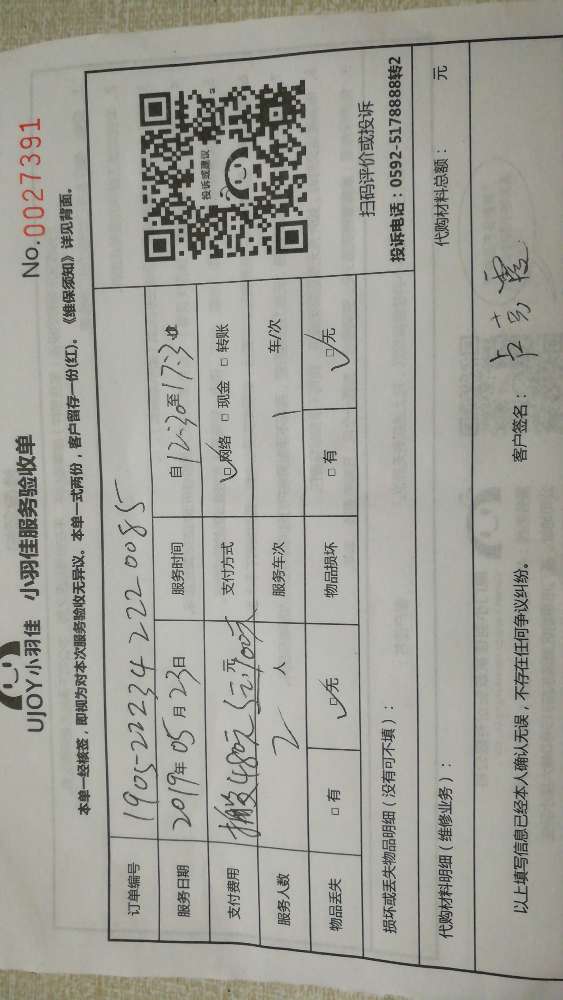 UJOY小羽佳 小羽佳服务验收单
No.0027391
本单一经核签，即视为对本次服务验收无异议。本单一式两份，客户留存一份(红)。《维保须知》详见背面。
订单编号 1905-22234 222 0085
服务日期 2019年05月23日 服务时间 自12:30至17:3
支付费用 搬 480元 元 支付方式 □网络 □现金 □转账
服务人数 2 人 服务车次 1 车/次
物品丢失 □有 □无 物品损坏 □有 □无
投诉或建议
扫码评价或投诉
投诉电话：0592-5178888转2
损坏或丢失物品明细（没有可不填）：
代购材料明细（维修业务）： 代购材料总额： 元
以上填写信息已经本人确认无误，不存在任何争议纠纷。 客户签名：